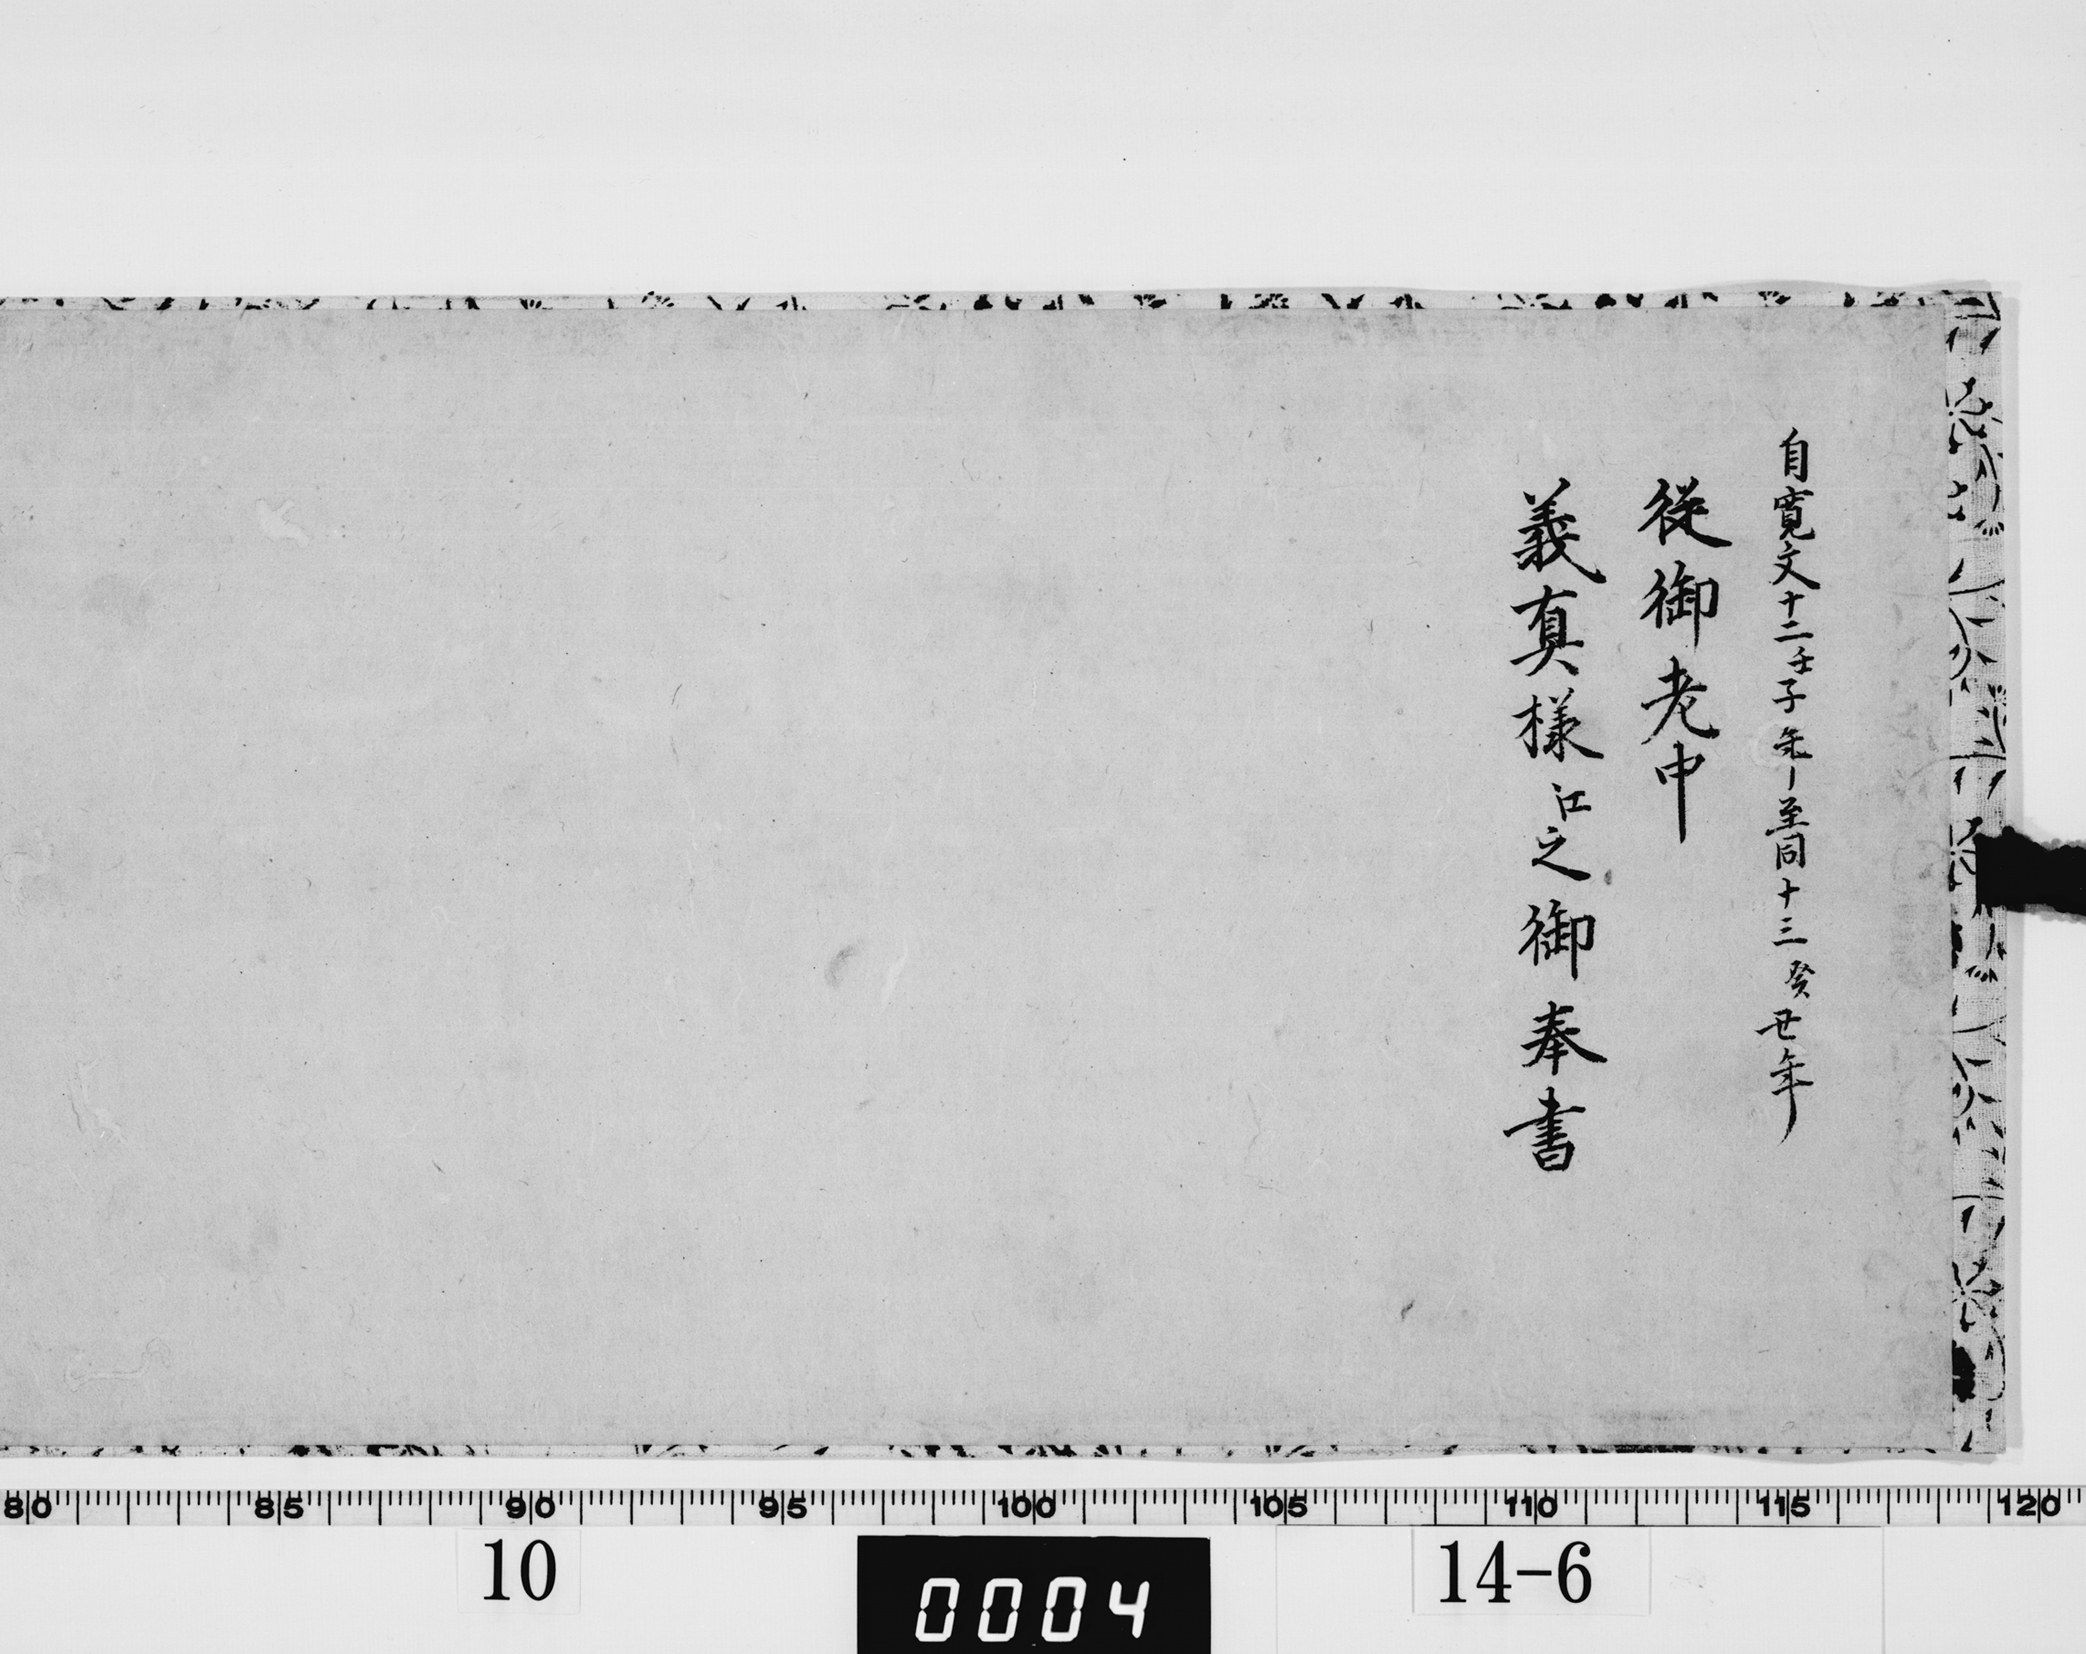 自寛文十二壬子年至同十三癸丑年
従御老中
義真様江之御奉書
80 85 90 95 100 105 110 115 120
10
0004
14-6